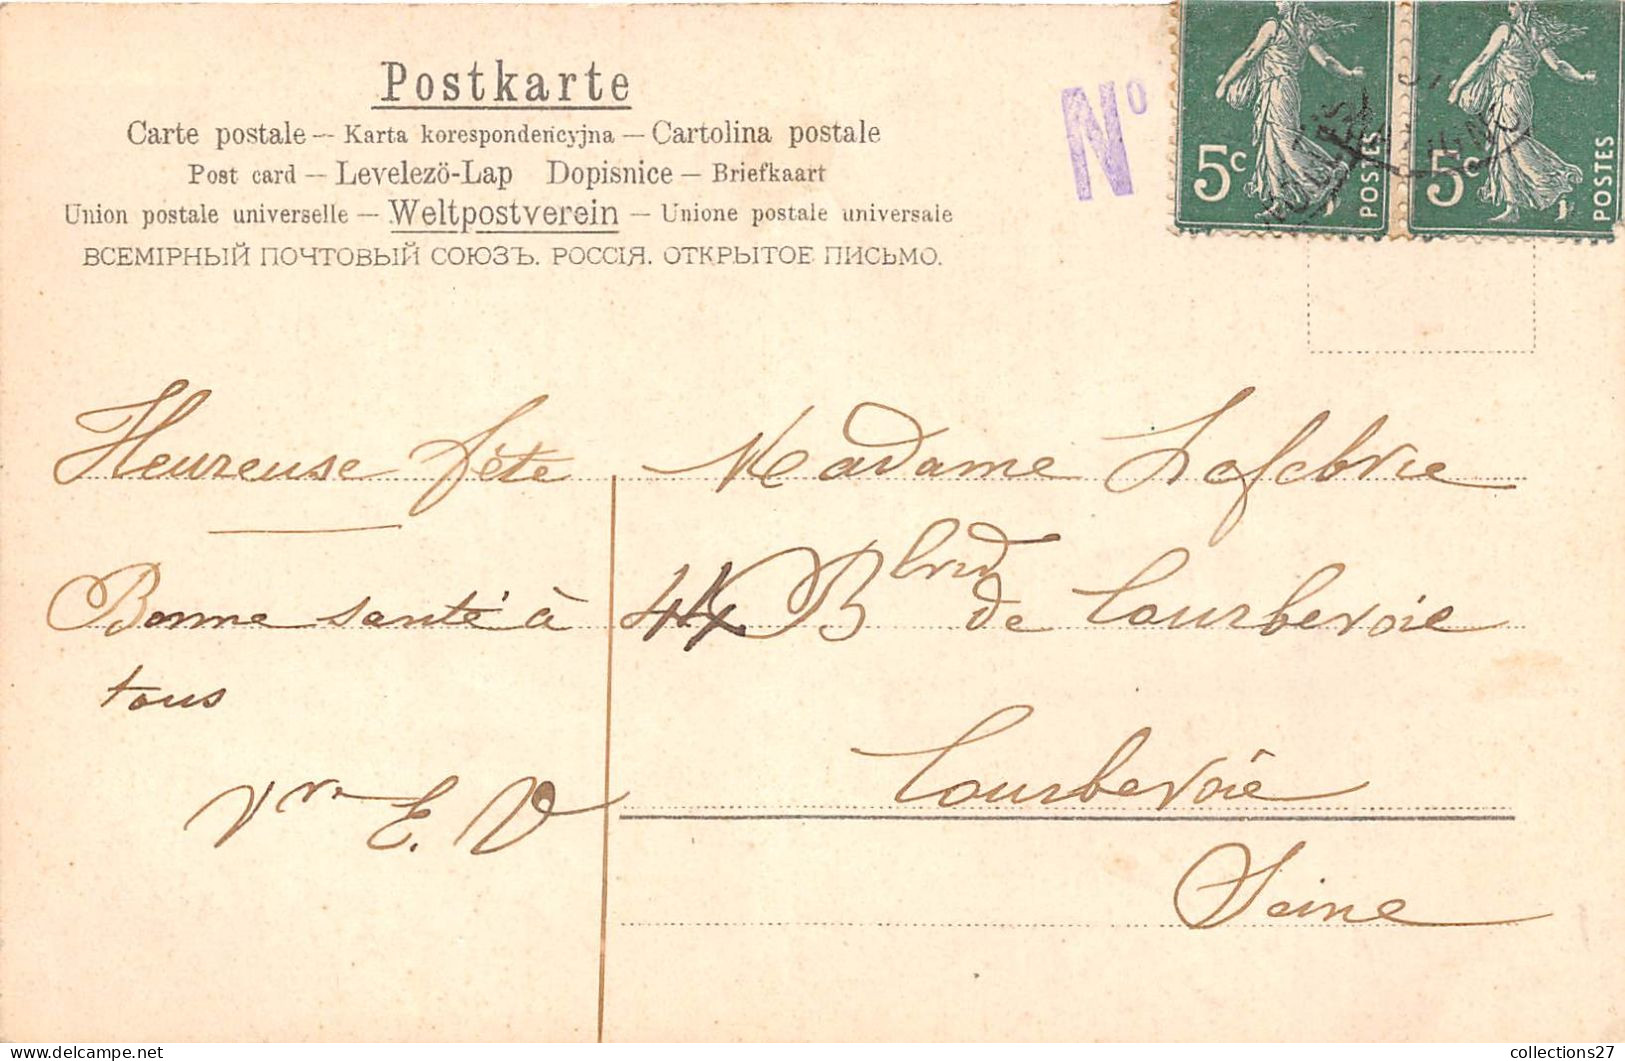 Postkarte
Carte postale — Karta korespondencyjna — Cartolina postale
Post card — Levelezö-Lap Dopisnice — Briefkaart
Union postale universelle — Weltpostverein — Unione postale universale
ВСЕМІРНЫЙ ПОЧТОВЫЙ СОЮЗЪ. РОССІЯ. ОТКРЫТОЕ ПИСЬМО.
No
5c POSTES
5c POSTES
Heureuse fête
Bonne santé à
tous
Vve E. V
Madame Lefebvre
44 Blvrd de Courbevoie
Courbevoie
Seine
collections27